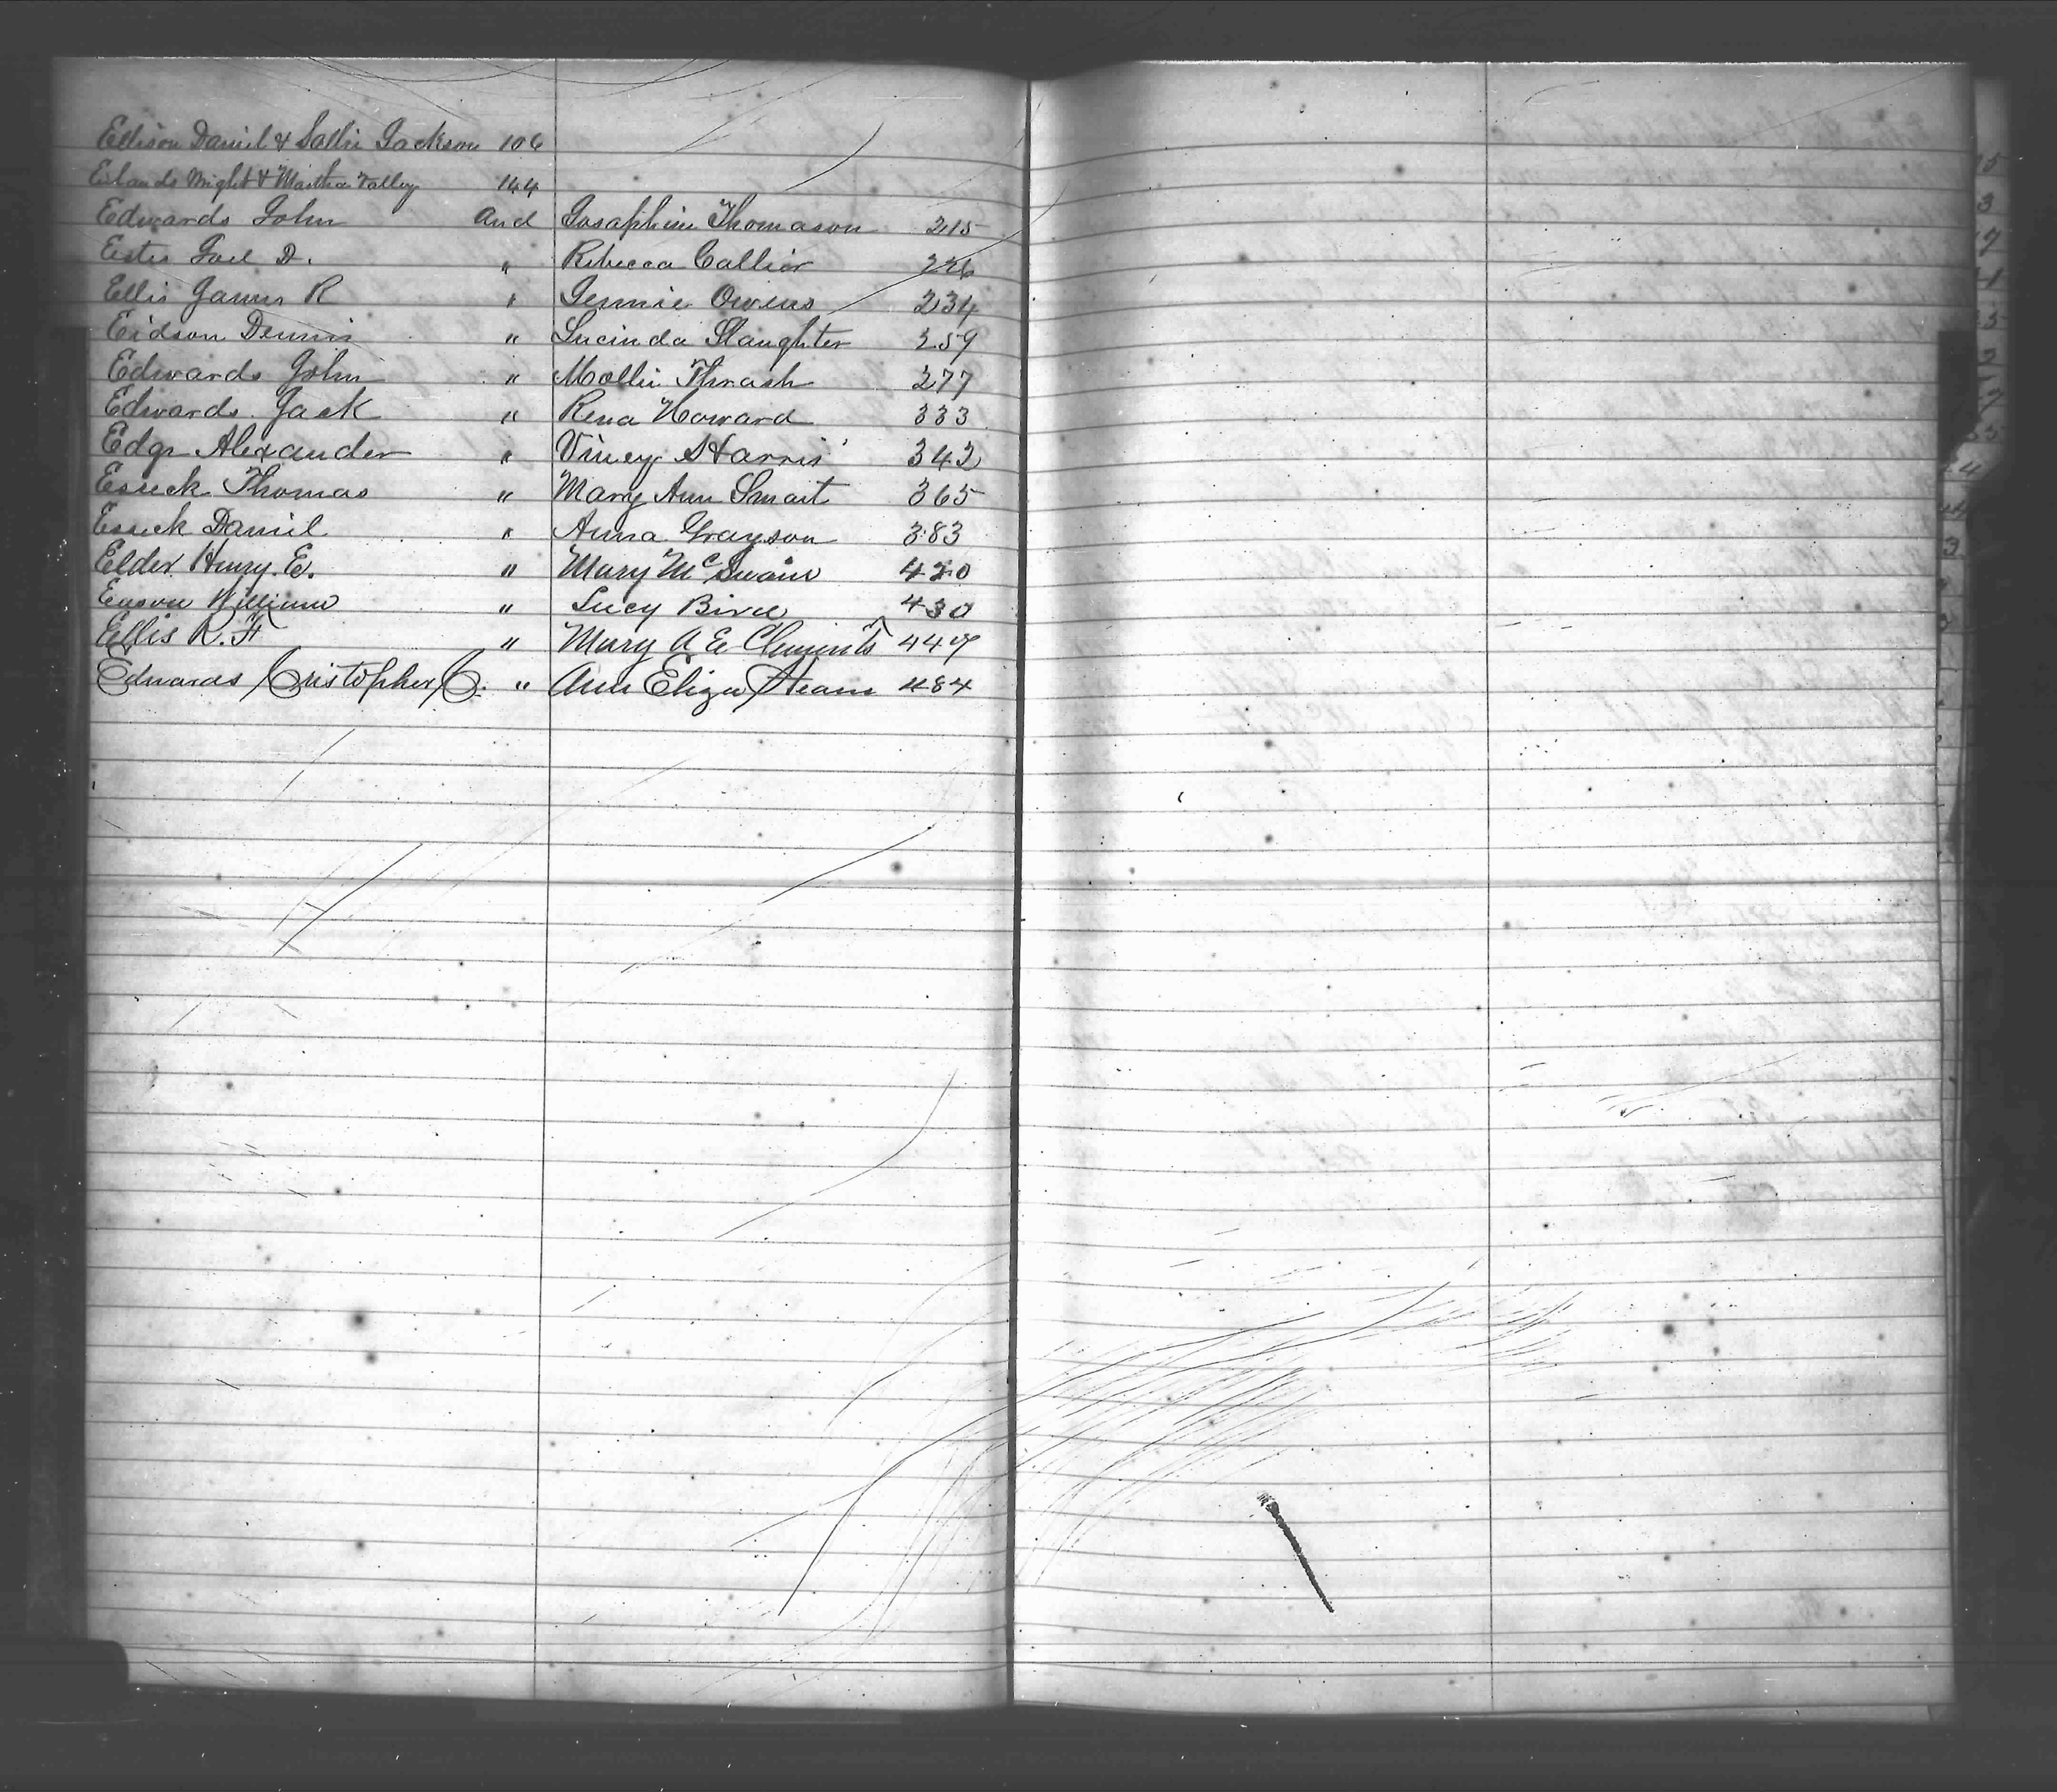 Ellison Daniel & Sallie Jackson 106
Eilands Wright & Martha Talley 144
Edwards John And Josaphine Thomason 215
Estes Joel D. " Rebecca Callier 226
Ellis James R " Jennie Owens 234
Eidson Dennis " Lucinda Slaughter 259
Edwards John " Mollie Thrash 277
Edwards Jack " Rena Howard 333
Edge Alexander " Viney Harris 342
Esseck Thomas " Mary Ann Smart 365
Esseck Daniel " Anna Grayson 383
Elder Henry. E. " Mary McSwain 420
Eason William " Lucy Bird 430
Ellis R. H " Mary A E Clements 447
Edwards Cristopher C. " Ann Eliza 484